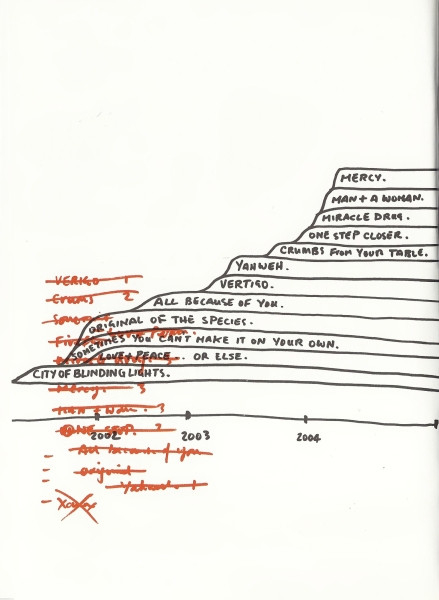 MERCY.
MAN + A WOMAN.
MIRACLE DRUG.
ONE STEP CLOSER.
CRUMBS FROM YOUR TABLE.
YAHWEH.
VERTIGO.
ALL BECAUSE OF YOU.
ORIGINAL OF THE SPECIES.
SOMETIMES YOU CAN'T MAKE IT ON YOUR OWN.
LOVE + PEACE.. OR ELSE.
CITY OF BLINDING LIGHTS.
2002 2003 2004
VERIGO 1
Crums 2
Mercy. 3
MAN + Wom. 3
ONE STEP. 2
All because of you
original
Yahweh. 1